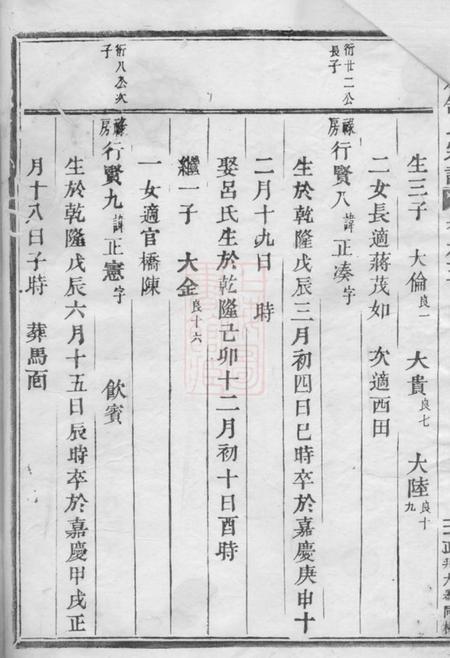 生三子 大倫良一 大貴良七 大陸良十九
二女長適蔣茂如 次適西田
衍廿二公長子
祿房行賢八諱正湊字
生於乾隆戊辰三月初四日巳時卒於嘉慶庚申十
二月十九日 時
娶呂氏生於乾隆己卯十二月初十日酉時
繼一子 大金良十六
一女適官橋陳
衍八公次子
祿房行賢九諱正憲字 飲賓
生於乾隆戊辰六月十五日辰時卒於嘉慶甲戌正
月十八日子時 葬馬面